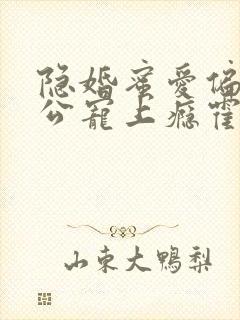 隐婚蜜爱偏
公宠上瘾霍
山东大鸭梨